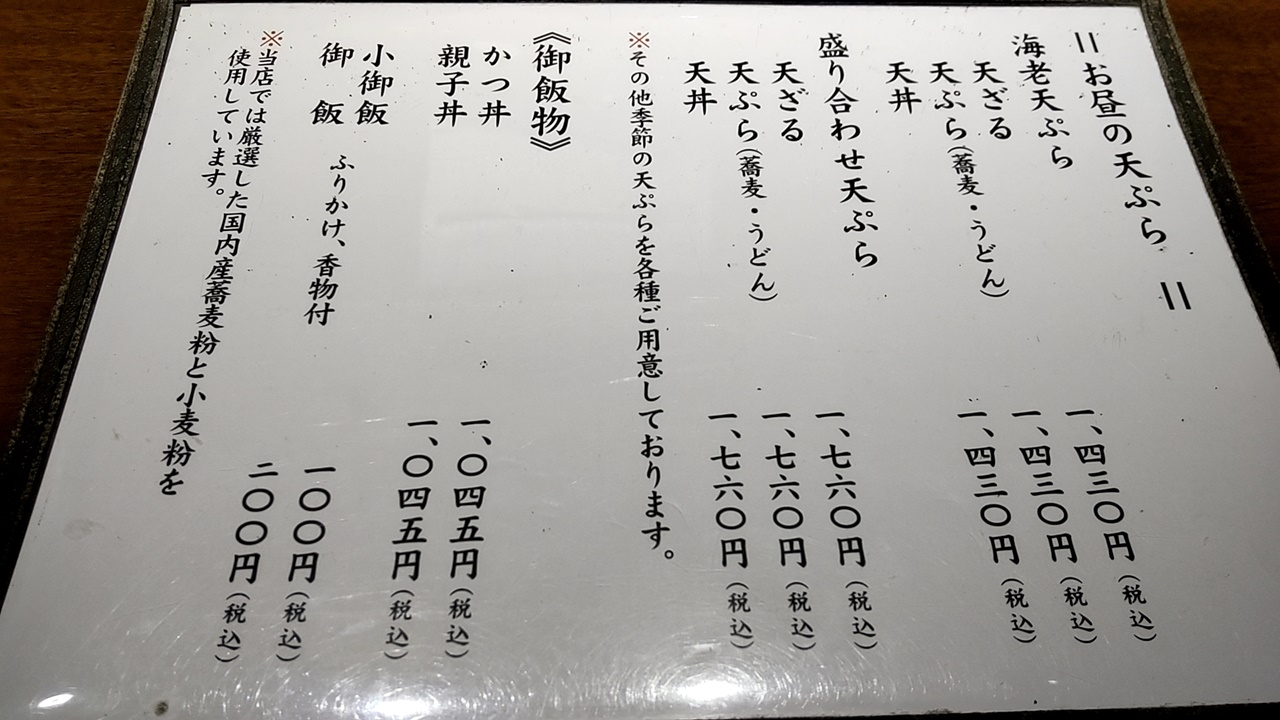 ＝お昼の天ぷら＝
海老天ぷら
天ざる 一、四三〇円（税込）
天ぷら（蕎麦・うどん） 一、四三〇円（税込）
天丼 一、四三〇円（税込）
盛り合わせ天ぷら
天ざる 一、七六〇円（税込）
天ぷら（蕎麦・うどん） 一、七六〇円（税込）
天丼 一、七六〇円（税込）
※その他季節の天ぷらを各種ご用意しております。
《御飯物》
かつ丼 一、〇四五円（税込）
親子丼 一、〇四五円（税込）
小御飯 一〇〇円（税込）
御飯 ふりかけ、香物付 二〇〇円（税込）
※当店では厳選した国内産蕎麦粉と小麦粉を
使用しています。